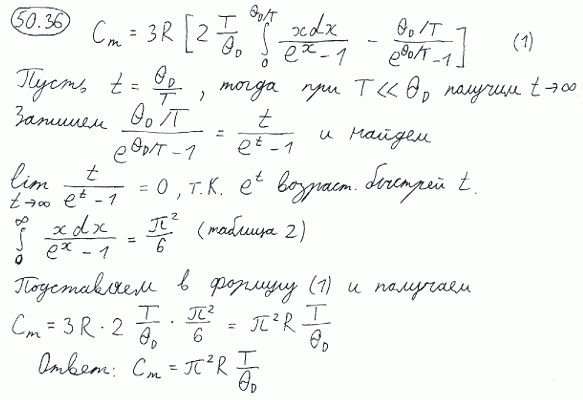 50.36
C_m = 3R [ 2 T/θ_D ∫_0^{θ_D/T} xdx/(e^x - 1) - (θ_D/T)/(e^{θ_D/T} - 1) ] (1)
Пусть t = θ_D/T, тогда при T << θ_D получим t → ∞
Запишем (θ_D/T)/(e^{θ_D/T} - 1) = t/(e^t - 1) и найдем
lim_{t→∞} t/(e^t - 1) = 0, т.к. e^t возраст. быстрей t.
∫_0^∞ xdx/(e^x - 1) = π²/6 (таблица 2)
Подставляем в формулу (1) и получаем
C_m = 3R · 2 T/θ_D · π²/6 = π²R T/θ_D
Ответ: C_m = π²R T/θ_D